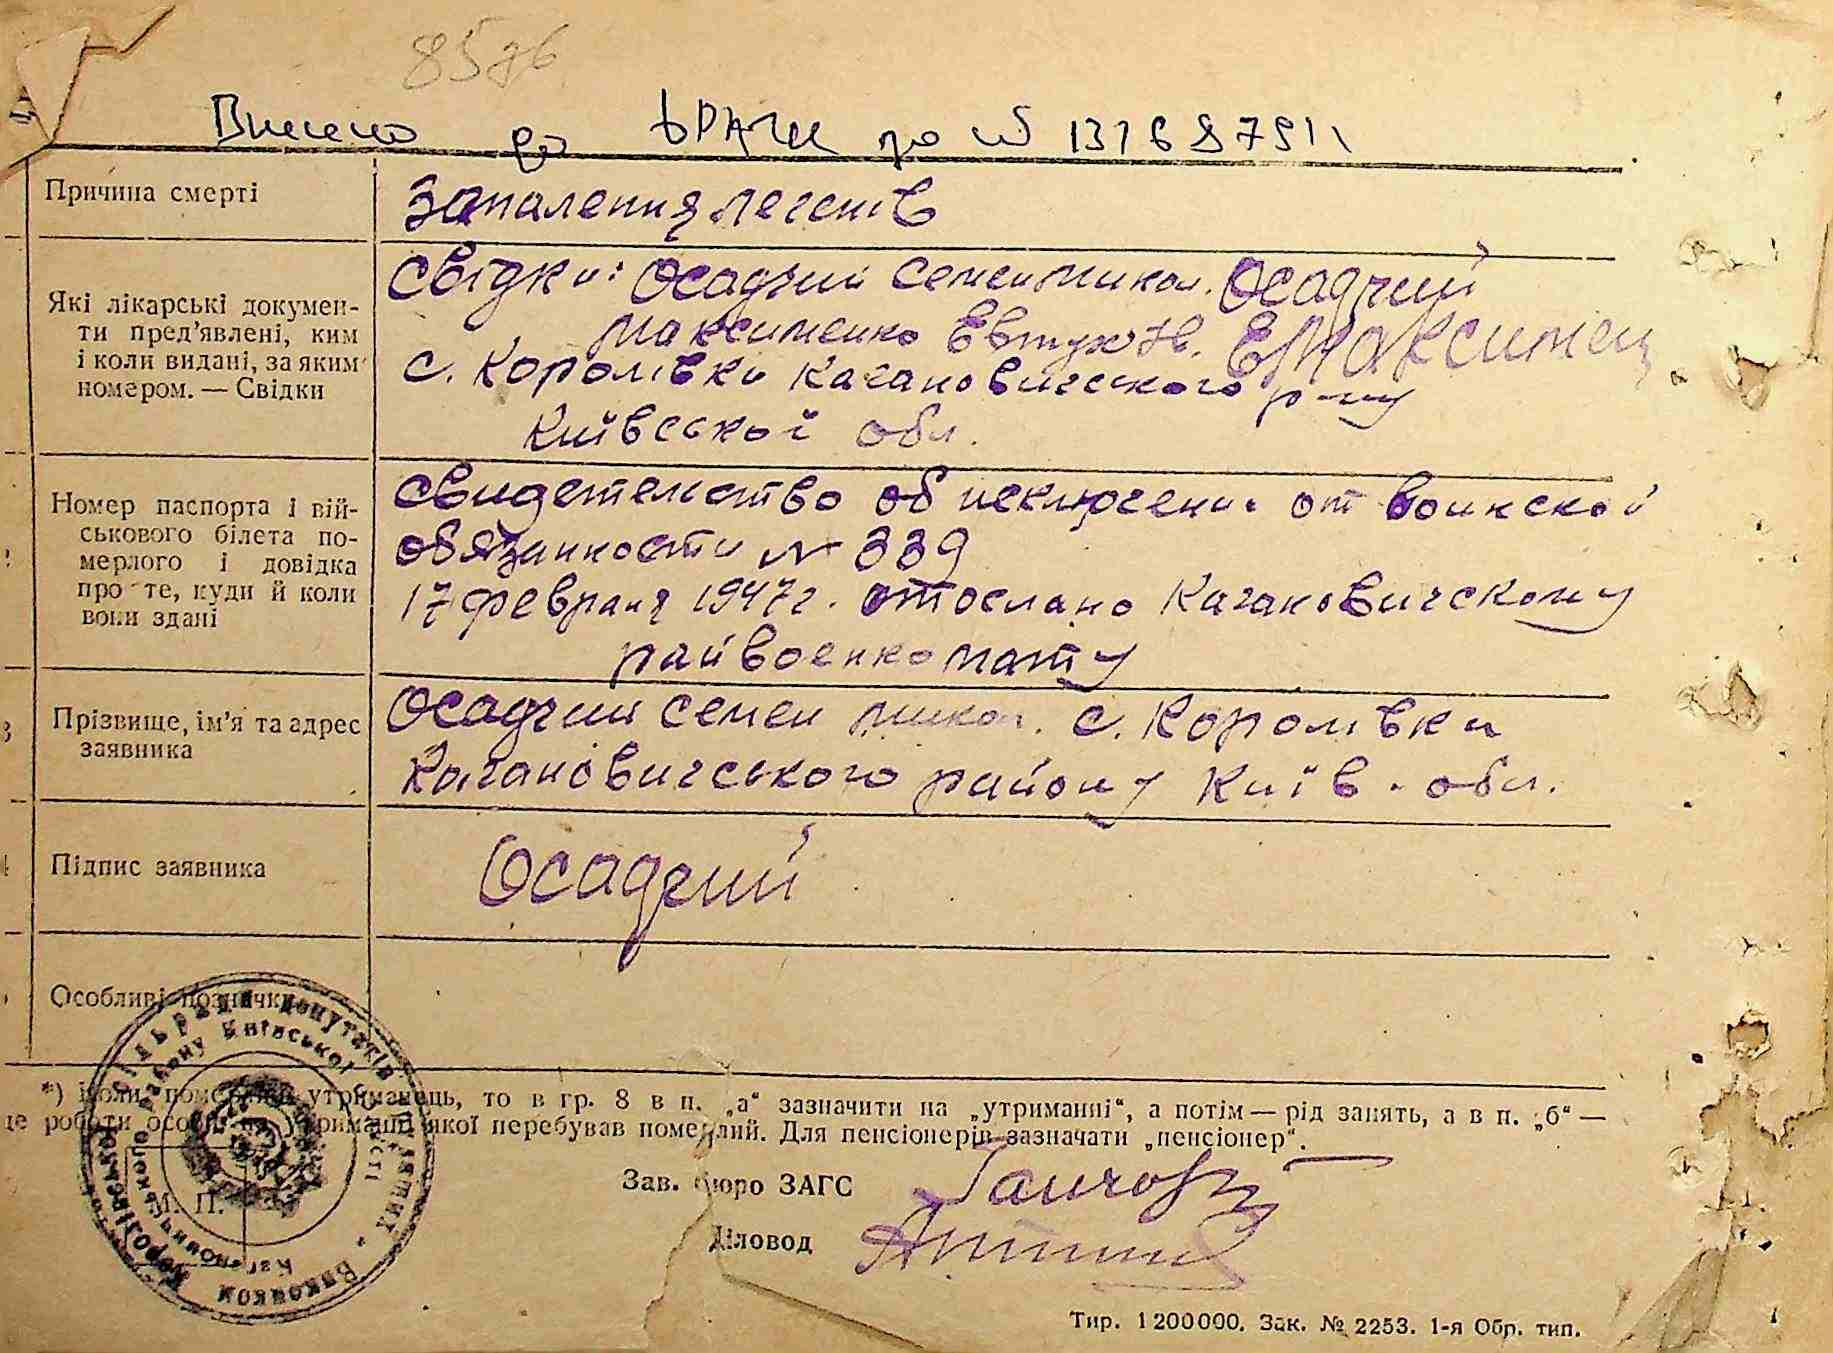 8576
Внесено до ДРАЦС за № 13168751
Причина смерті
Запалення легенів
Які лікарські докумен-
ти пред'явлені, ким
і коли видані, за яким
номером. — Свідки
Свідки: Осадчий Семен Микол. Осадчий
Максименко Евтух Ів. ЕМаксимец
с. Королівки Кагановичського р-ну
Київської обл.
Номер паспорта і вій-
ськового білета по-
мерлого і довідка
про те, куди й коли
вони здані
Свидетельство об исключении от воинской
обязанности № 339
17 февраля 1947 г. отослано Кагановичскому
райвоенкомату
Прізвище, ім'я та адрес
заявника
Осадчий Семен Микол. с. Королівки
Кагановичського району Київ. обл.
Підпис заявника
Осадчий
Особливі позначки
*) Коли померлий утриманець, то в гр. 8 в п. „а" зазначити на „утриманні", а потім — рід занять, а в п. „б" —
це роботи особи, на утриманні якої перебував померлий. Для пенсіонерів зазначати „пенсіонер".
Зав. бюро ЗАГС
Діловод
М. П.
сільради депутатів трудящих • Виконком Королівської
Кагановичського району Київської області
Тир. 1200000. Зак. № 2253. 1-я Обр. тип.